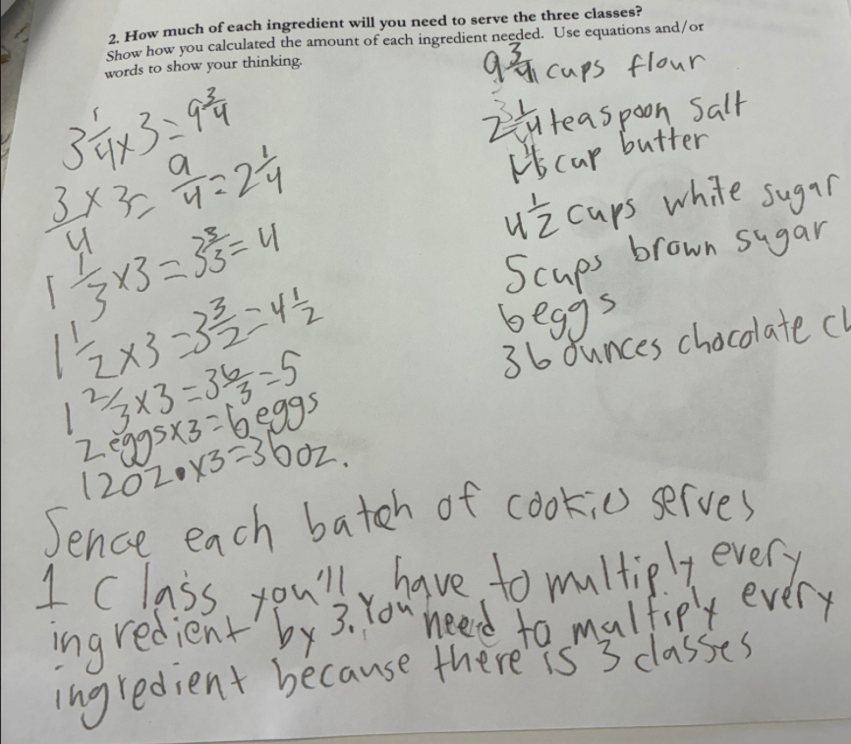 2. How much of each ingredient will you need to serve the three classes?
Show how you calculated the amount of each ingredient needed. Use equations and/or
words to show your thinking.
3 1/4 x 3 = 9 3/4
3/4 x 3 = 9/4 = 2 1/4
1 1/3 x 3 = 3 3/3 = 4
1 1/2 x 3 = 3 3/2 = 4 1/2
1 2/3 x 3 = 3 6/3 = 5
2 eggs x 3 = 6 eggs
12 oz. x 3 = 36 oz.
9 3/4 cups flour
2 1/4 teaspoon salt
cup butter
4 1/2 cups white sugar
5 cups brown sugar
6 eggs
36 ounces chocolate ch
Sence each batch of cookies serves
1 Class you'll have to multiply every
ingredient by 3. You need to multiply every
ingredient because there is 3 classes